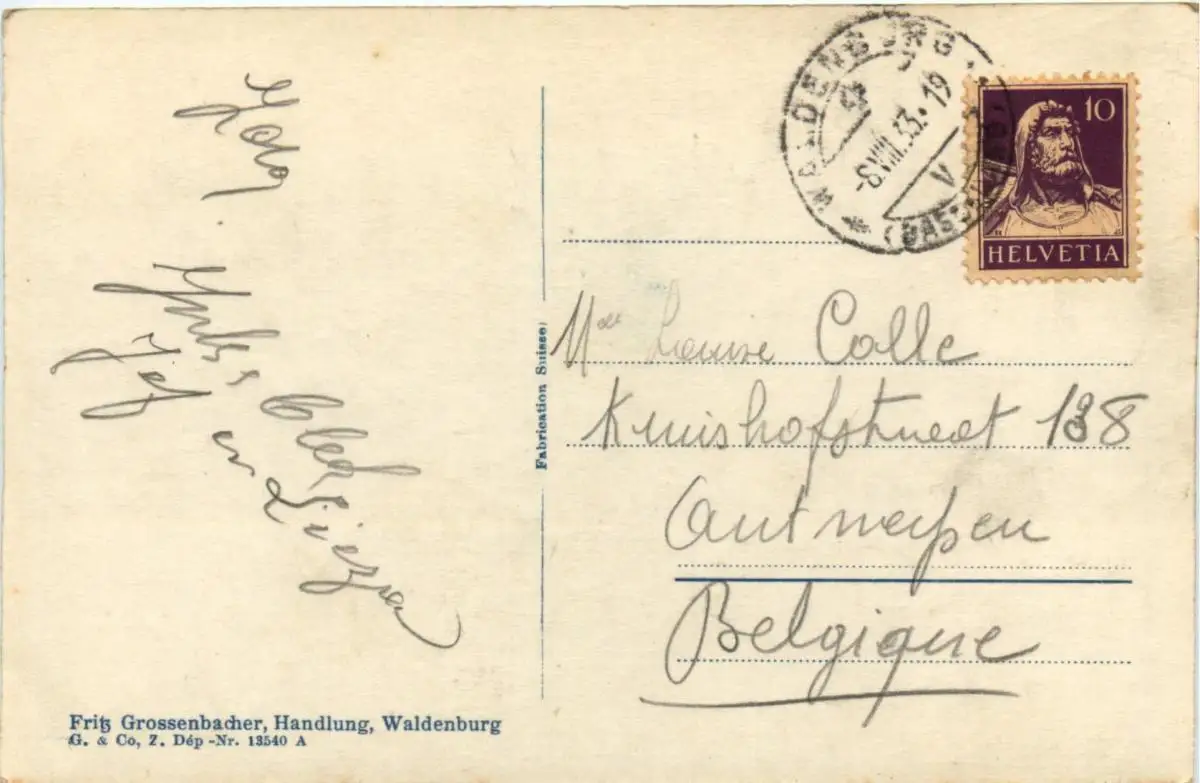 Ida
Jef
en
Fritz Grossenbacher, Handlung, Waldenburg
G. & Co, Z. Dép -Nr. 13540 A
Fabrication Suisse
WALDENBURG
-8.VIII.33.19
V
10
HELVETIA
Mlle Louise Colle
Kruishofstraat 138
Antwerpen
Belgique